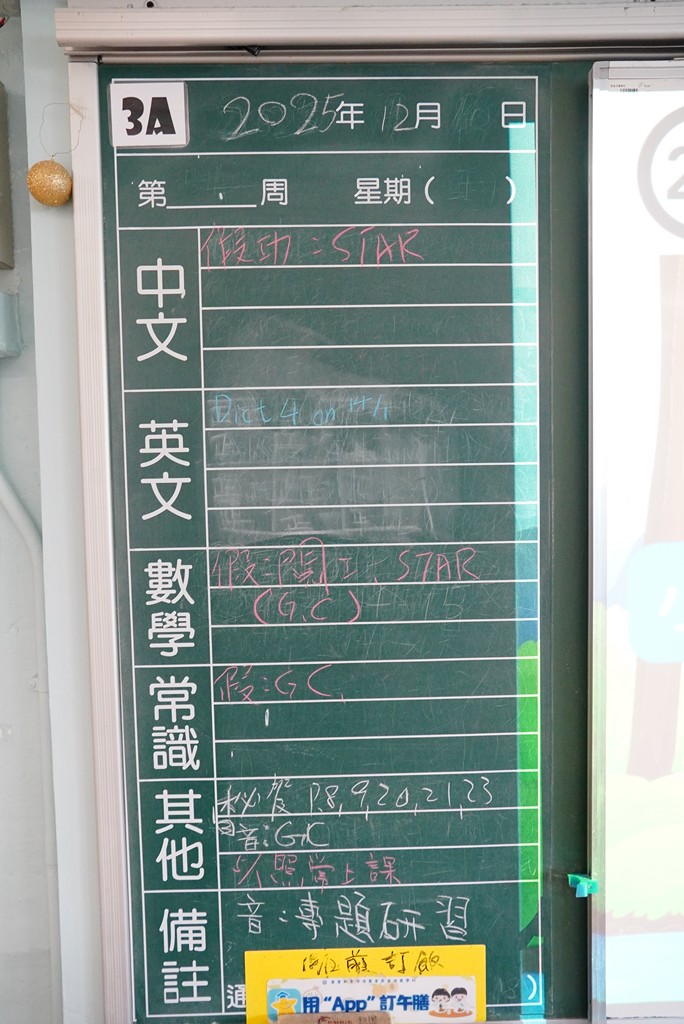 3A 2025年 12月 日
第 周 星期( )
中文
假功:STAR
英文
Dict 4 on 14/1
數學
假: 工、STAR
(G.C)
常識
假:GC
其他
P.8,9,20,21,23
音:GC
照常上課
備註
音:專題研習
通
前訂飯
用“App”訂午膳